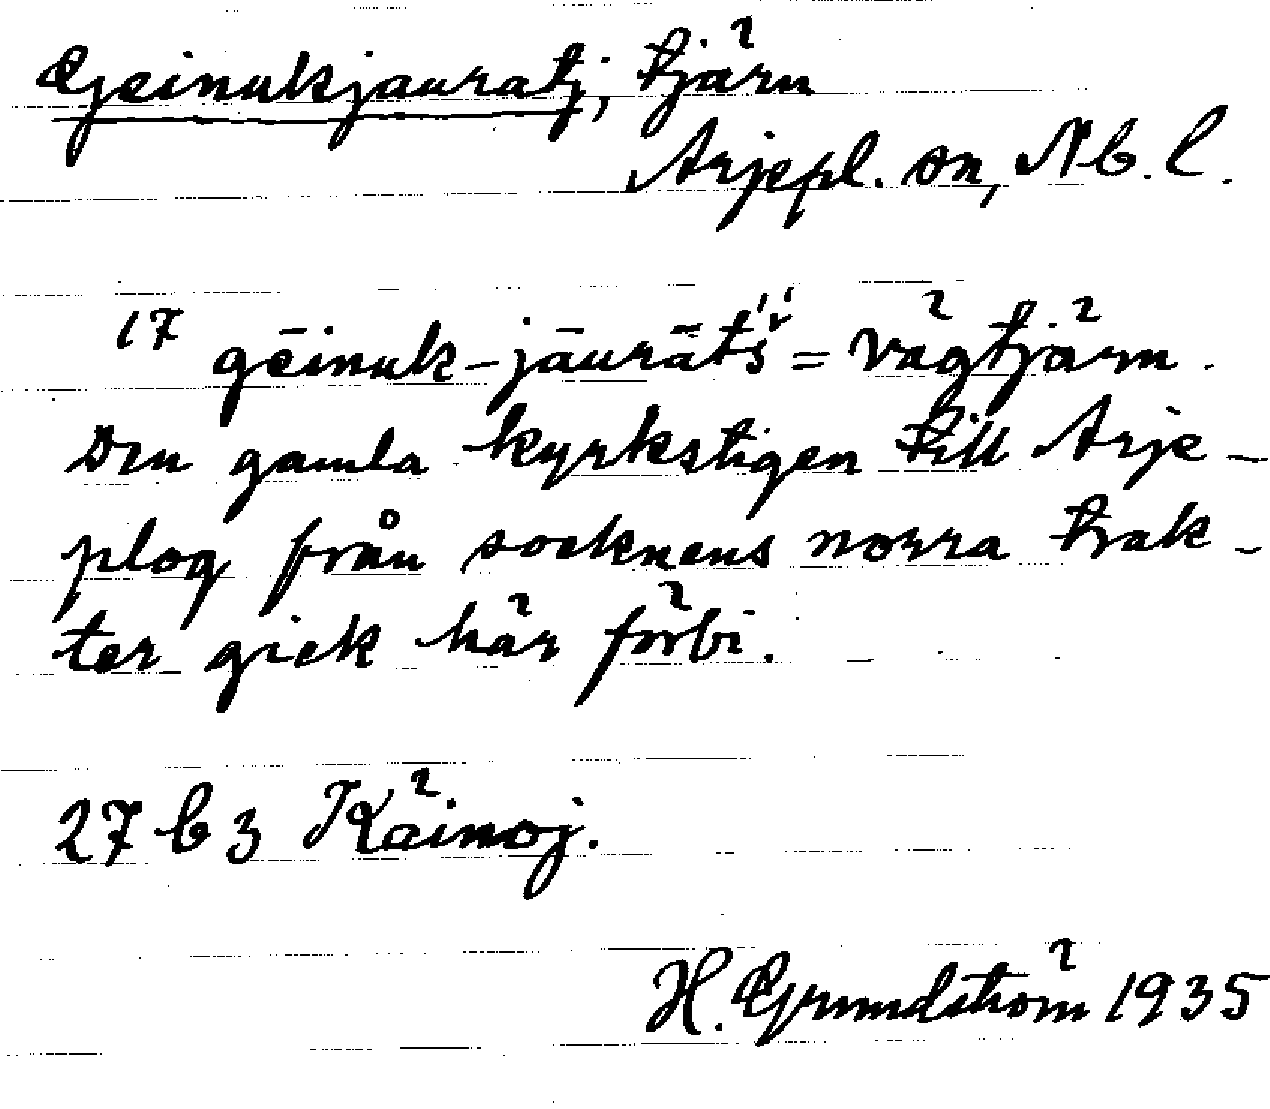 Geinukjauratj, tjärn
Arjepl. sn, Nb. l.
17 gēinuk-jāurātś = vägtjärn.
Den gamla kyrkstigen till Arje-
plog från socknens norra trak-
ter gick här förbi.
27 b 3 Käinoj.
H. Grundström 1935